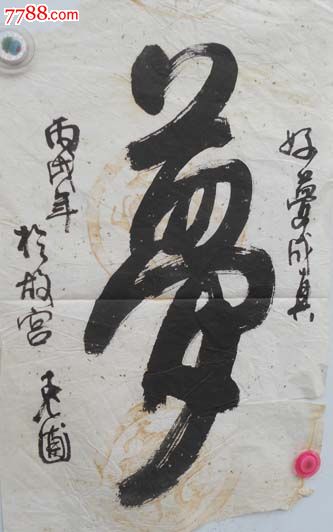 7788.com
好夢成真
夢
丙戌年
於故宮